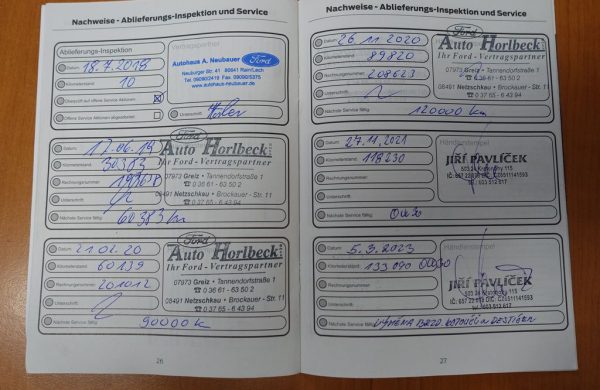 Nachweise - Ablieferungs-Inspektion und Service
Ablieferungs-Inspektion
Datum 18.7.2018
Kilometerstand 10
Überprüft auf offene Service Aktionen
Offene Service Aktionen abgearbeitet
Vertragspartner
Autohaus A. Neubauer Ford
Neuburger Str. 41 · 86641 Rain/Lech
www.autohaus-neubauer.de
Unterschrift
Datum 17.06.19
Kilometerstand 30383
Rechnungsnummer
Unterschrift
Nächste Service fällig 60383 km
Ford
Auto Horlbeck
Ihr Ford - Vertragspartner
07973 Greiz • Tannendorfstraße 1
☎ 0 36 61 - 63 50 2
08491 Netzschkau • Brockauer Str. 11
☎ 0 37 65 - 6 43 94
Datum 21.02.20
Kilometerstand 60139
Rechnungsnummer 201012
Unterschrift
Nächste Service fällig 90000 k
Ford
Auto Horlbeck
Ihr Ford - Vertragspartner
07973 Greiz • Tannendorfstraße 1
☎ 0 36 61 - 63 50 2
08491 Netzschkau • Brockauer Str. 11
☎ 0 37 65 - 6 43 94
26
Nachweise - Ablieferungs-Inspektion und Service
Datum 26.11.2020
Kilometerstand 89820
Rechnungsnummer 208623
Unterschrift
Nächste Service fällig 120000 km
Ford
Auto Horlbeck
Ihr Ford - Vertragspartner
07973 Greiz • Tannendorfstraße 1
☎ 0 36 61 - 63 50 2
08491 Netzschkau • Brockauer Str. 11
☎ 0 37 65 - 6 43 94
Datum 27.11.2021
Kilometerstand 118230
Rechnungsnummer
Unterschrift
Nächste Service fällig 0W30
Händlerstempel
JIŘÍ PAVLÍČEK
Datum 5.3.2023
Kilometerstand 133090 0W30
Rechnungsnummer
Unterschrift
Nächste Service fällig VÝMĚNA BRZD KOTOUČŮ A DESTIČEK
Händlerstempel
JIŘÍ PAVLÍČEK
27